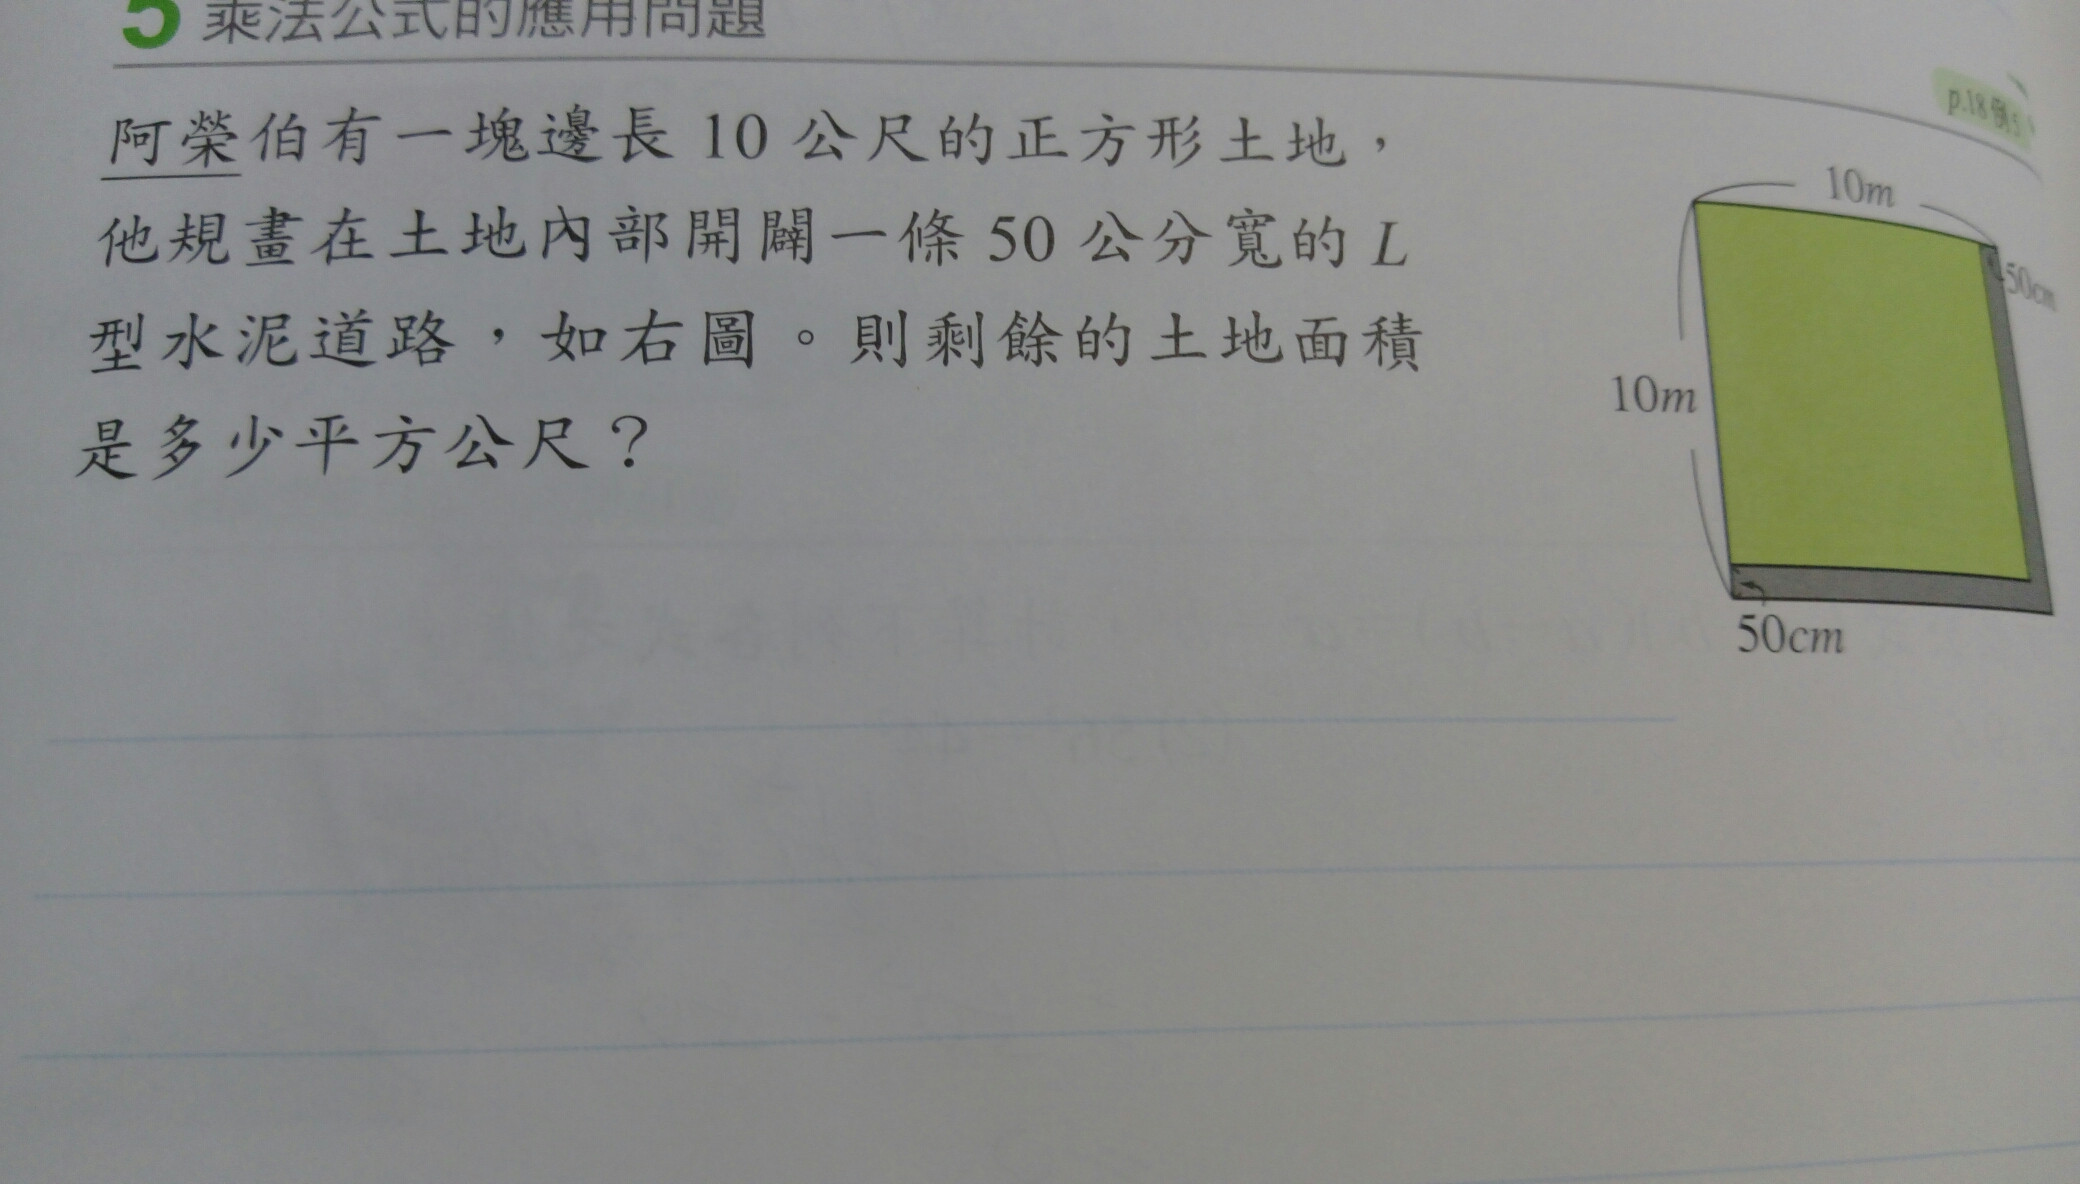 5 乘法公式的應用問題
p.18例5
阿榮伯有一塊邊長 10 公尺的正方形土地，
他規畫在土地內部開闢一條 50 公分寬的 L
型水泥道路，如右圖。則剩餘的土地面積
是多少平方公尺？
10m
50cm
10m
50cm